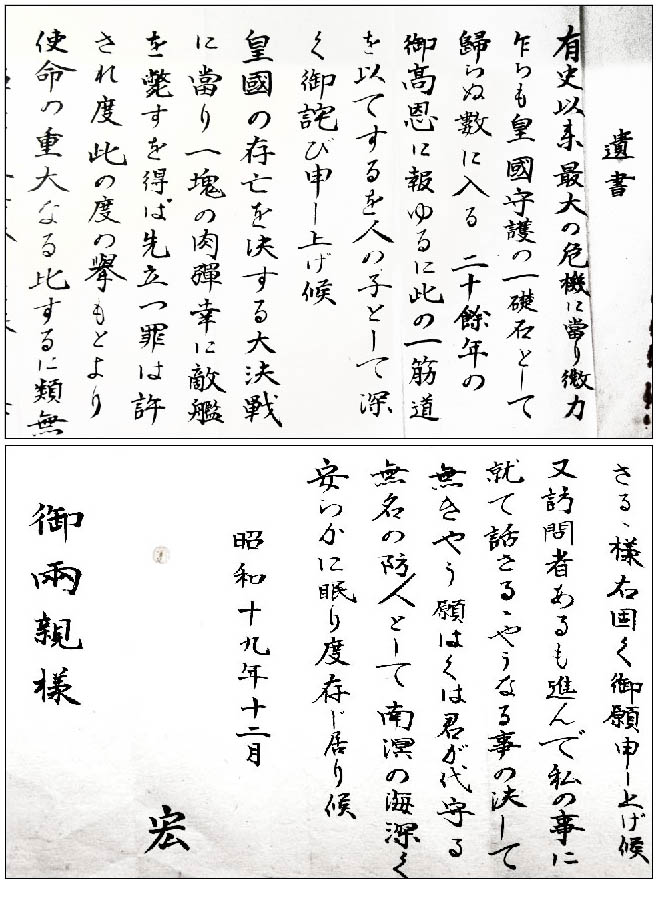 遺書
有史以来最大の危機に當り微力
乍らも皇國守護の一礎石として
歸らぬ數に入る 二十餘年の
御高恩に報ゆるに此の一筋道
を以てするを人の子として深
く御詫び申し上げ候
皇國の存亡を決する大決戰
に當り一塊の肉彈幸に敵艦
を斃すを得ば先立つ罪は許
され度 此の度の擧もとより
使命の重大なる比するに類無
さるゝ様右固く御願申し上げ候
又訪問者あるも進んで私の事に
就て話さるゝやうなる事の決して
無きやう 願はくは君が代守る
無名の防人として 南溟の海深く
安らかに眠り度存じ居り候
昭和十九年十二月
宏
御兩親様